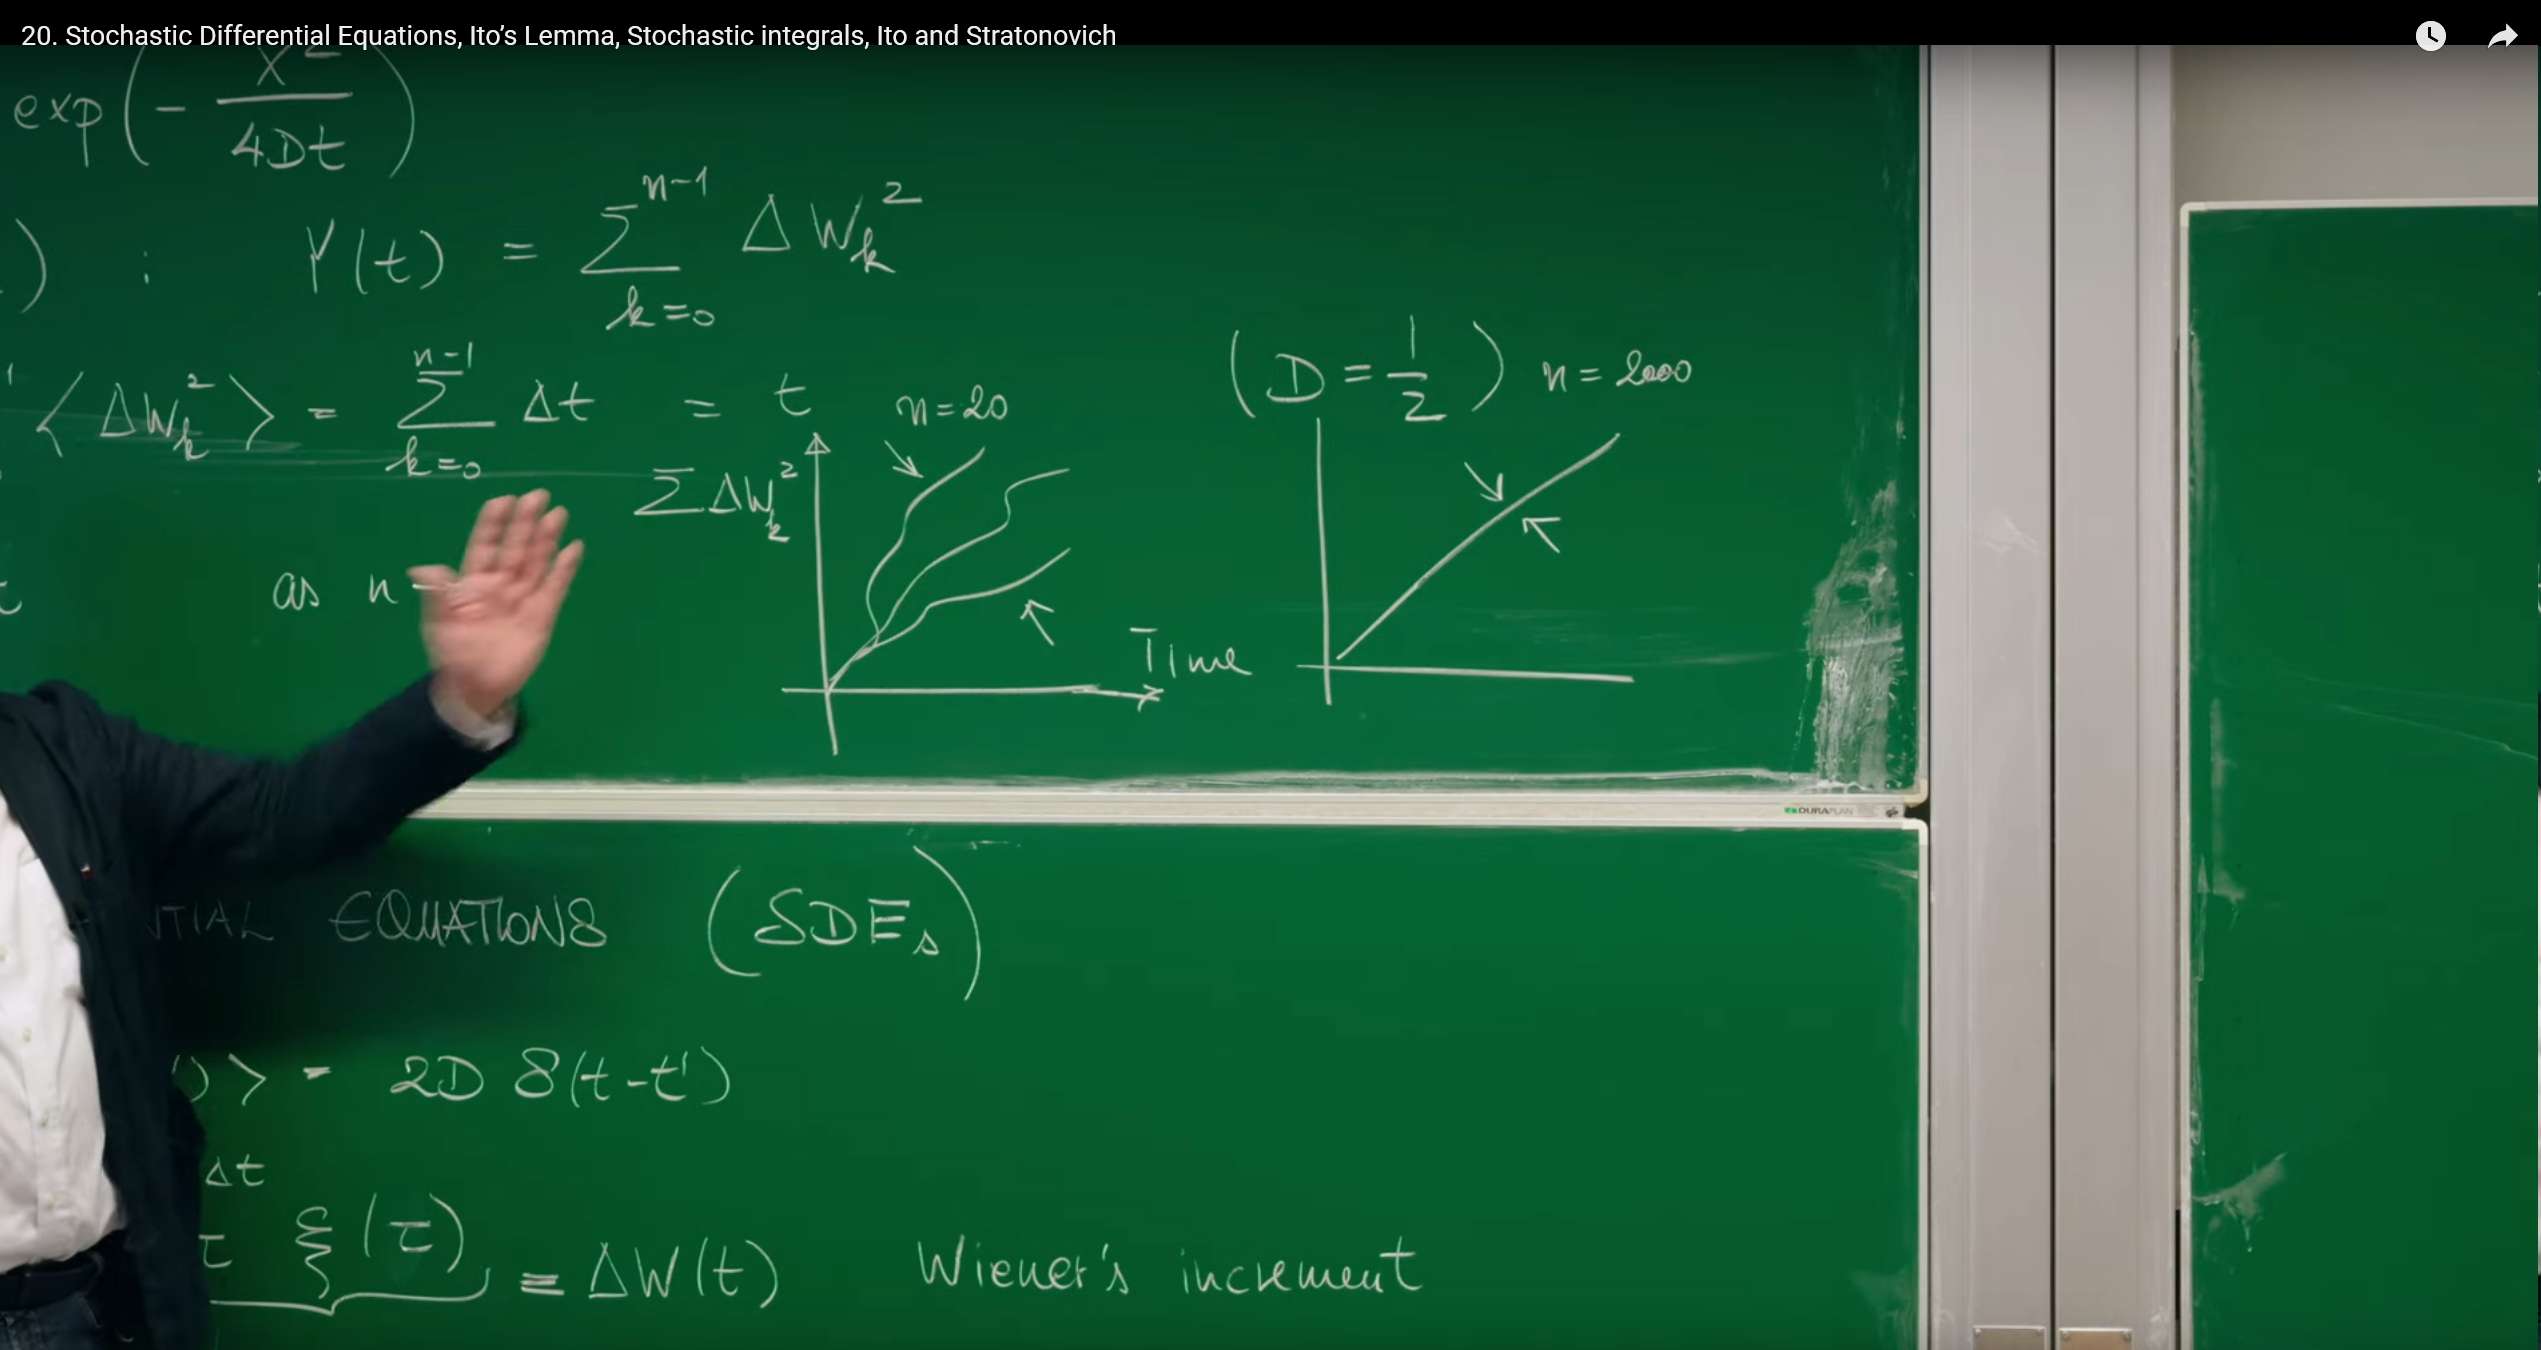 20. Stochastic Differential Equations, Ito’s Lemma, Stochastic integrals, Ito and Stratonovich
exp(- x² / 4Dt)
) : Y(t) = Σ_{k=0}^{n-1} ΔW_k²
⟨ΔW_k²⟩ = Σ_{k=0}^{n-1} Δt = t
n=20
(D = 1/2) n = 2000
ΣΔW_k²
as n
Time
DURAPLAN
NTIAL EQUATIONS (SDEs)
')> = 2D δ(t-t')
Δt
τ ξ(τ) ≡ ΔW(t) Wiener's increment